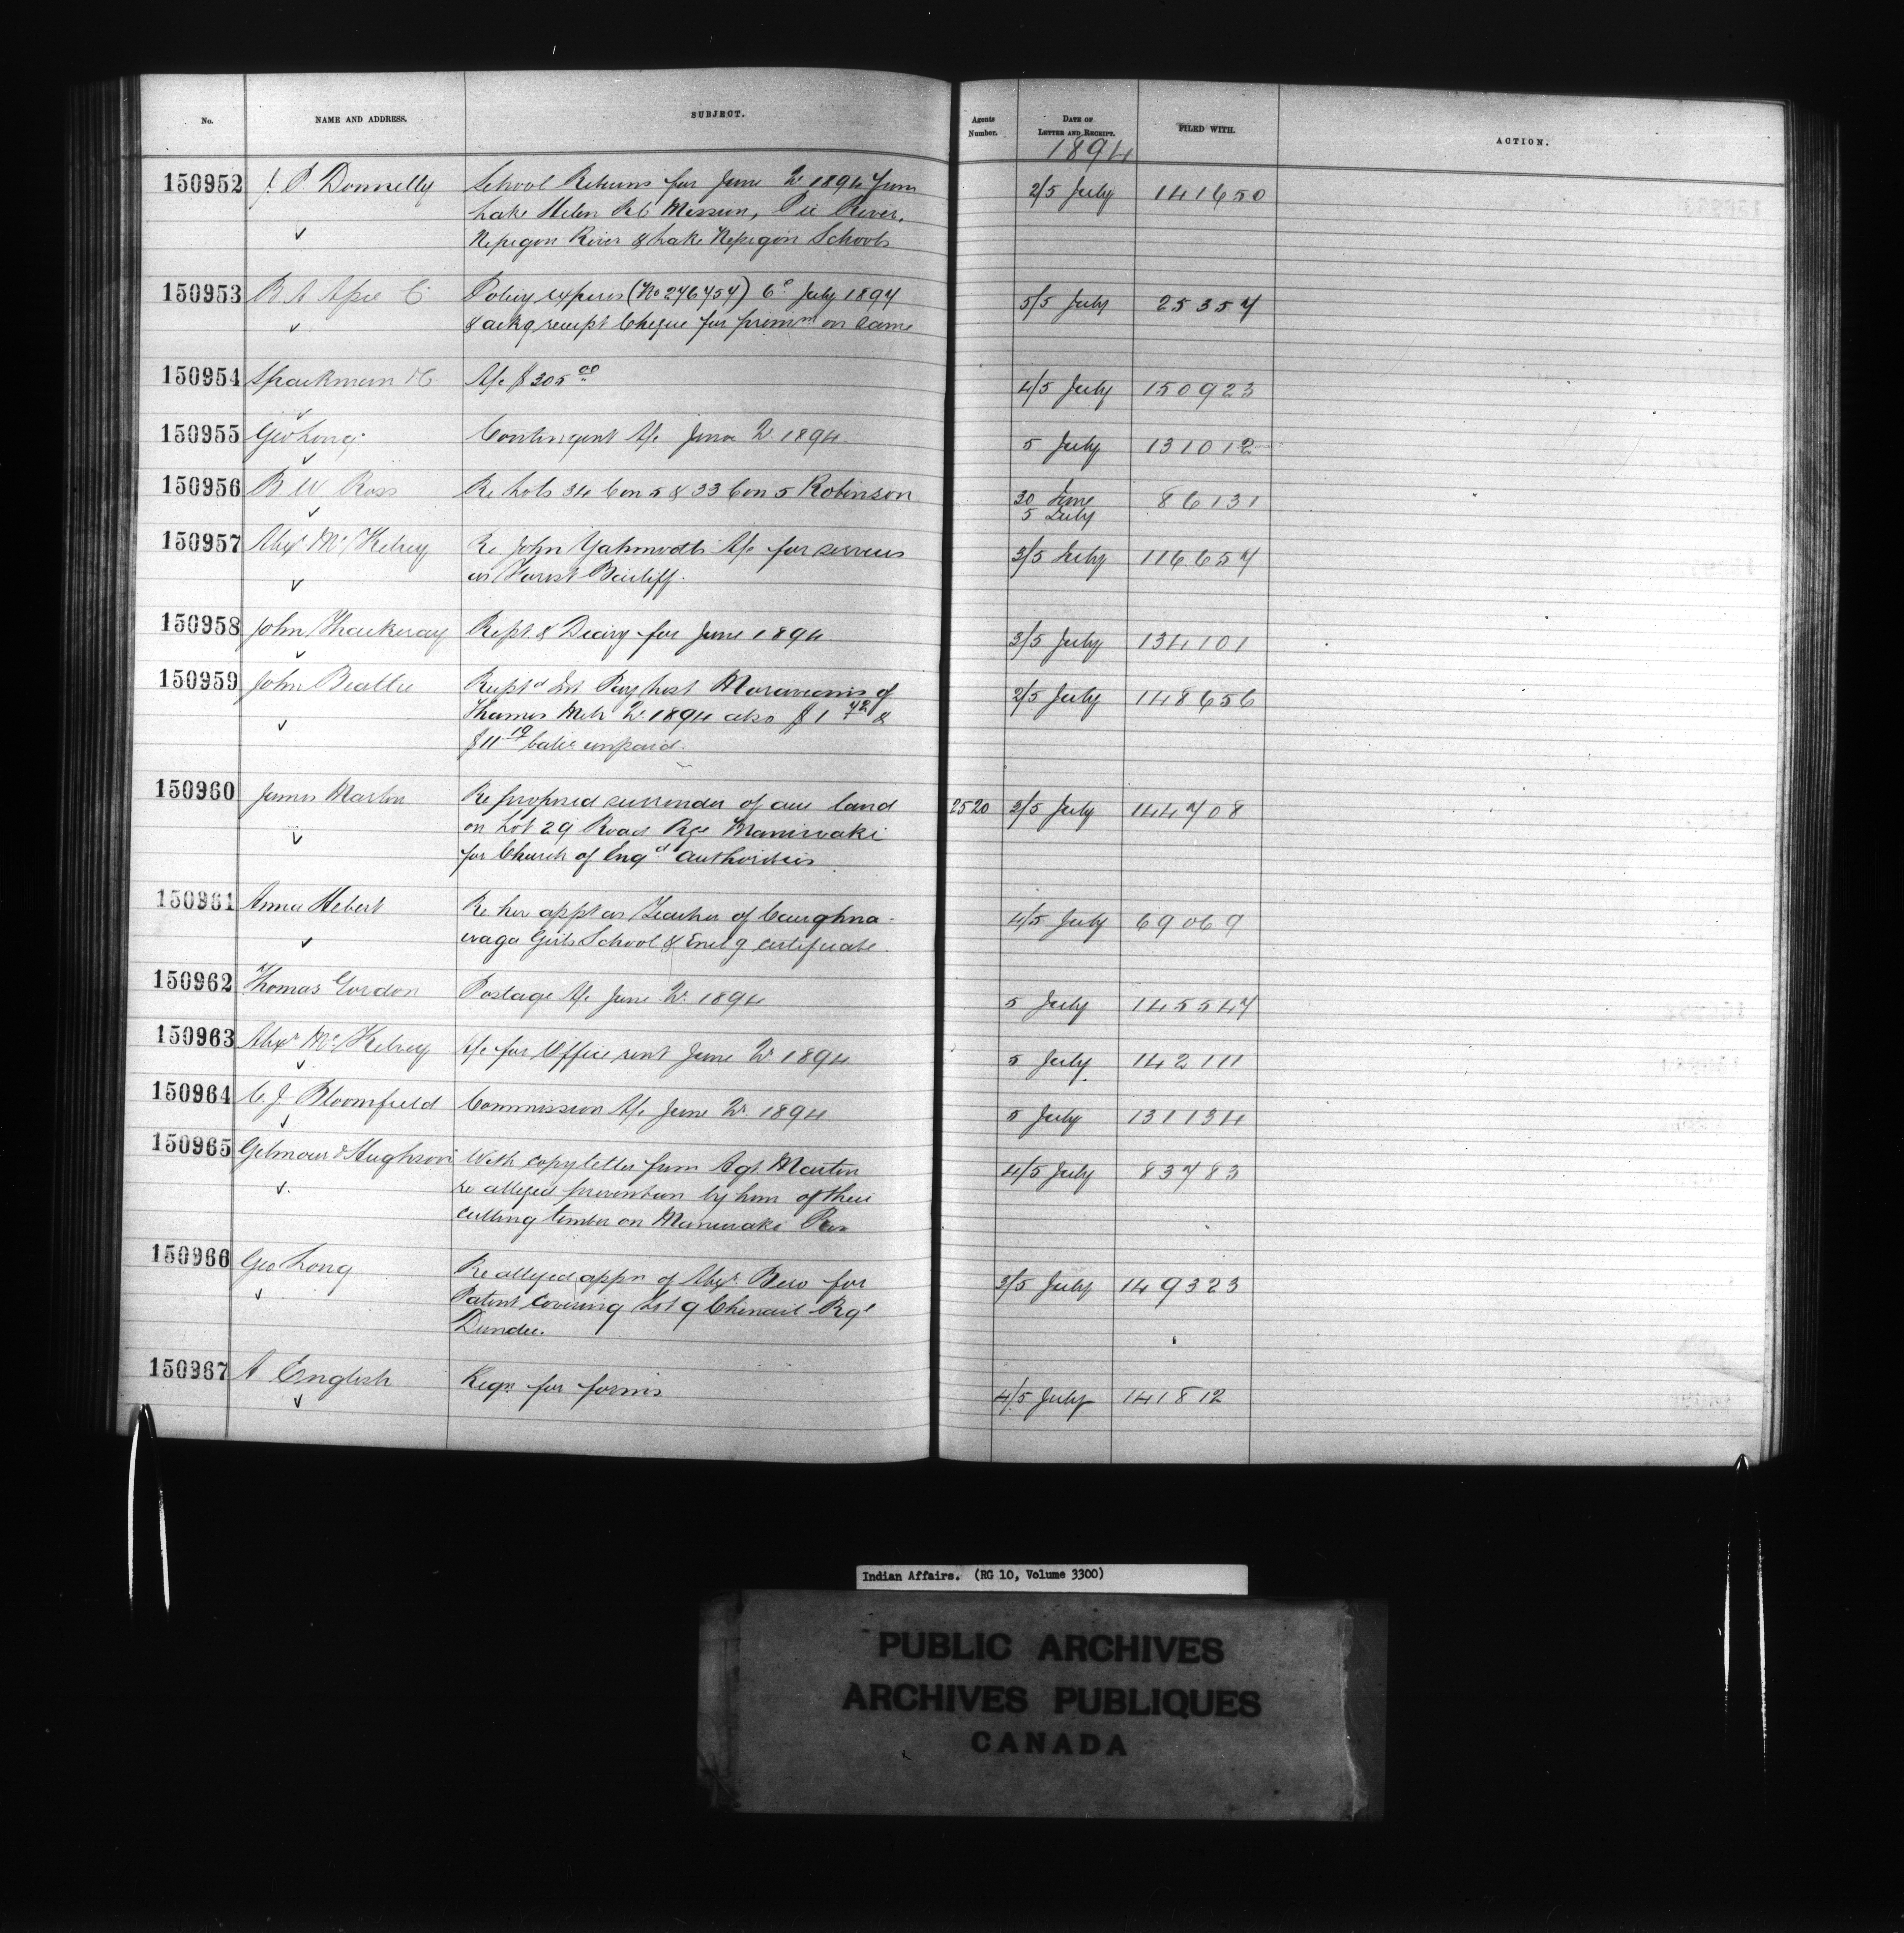 No. NAME AND ADDRESS. SUBJECT. Agents Number. DATE OF LETTER AND RECEIPT. FILED WITH. ACTION.
1894
150952 J. P. Donnelly School Returns for June Qr 1894 from 2/5 July 141650
Lake Helen RC Mission, Pic River,
Nepigon River & Lake Nepigon Schools
150953 R A Assce Co Policy expires (No 246454) 6th July 1894 5/5 July 25357
& ackg receipt Cheque for premm on same
150954 Sparkman & C A/c $305.00 4/5 July 150923
150955 Geo Long Contingent A/c June Qr 1894 5 July 131012
150956 B W Ross Re Lots 34 Con 5 & 33 Con 5 Robinson 30 June 86131
5 July
150957 Alexr McKelvey Re John A/c for services 3/5 July 116657
as Forest Bailiff.
150958 John Thackeray Rept & Diary for June 1894 3/5 July 134101
150959 John Beattie Rceptd Int Pay List Moravians of 2/5 July 148656
Thames Mch Qr 1894 also $1 72 &
$11 19 balce unpaid.
150960 James Martin Re proposed surrender of land 2520 2/5 July 144708
on Lot 29 Road Rge Maniwaki
for Church of Engd authorities
150961 Annie Hebert Re her appt as Teacher of Caughna- 4/5 July 69069
waga Girls School & Encl g certificate.
150962 Thomas Gordon Postage A/c June Qr 1894 5 July 145547
150963 Alexr McKelvey A/c for Office rent June Qr 1894 5 July 142111
150964 C. J. Bloomfield Commission A/c June Qr 1894 5 July 131134
150965 Gilmour & Hughson With copy letter from Agt. Martin 4/5 July 83783
re alleged prevention by him of their
cutting timber on Maniwaki Res
150966 Geo Long Re alleged appn of Alexr. Bero for 3/5 July 149323
Patent covering Lot 9 Chenail Rge
Dundee.
150967 A English Reqn for forms 4/5 July 141812
Indian Affairs. (RG 10, Volume 3300)
PUBLIC ARCHIVES
ARCHIVES PUBLIQUES
CANADA